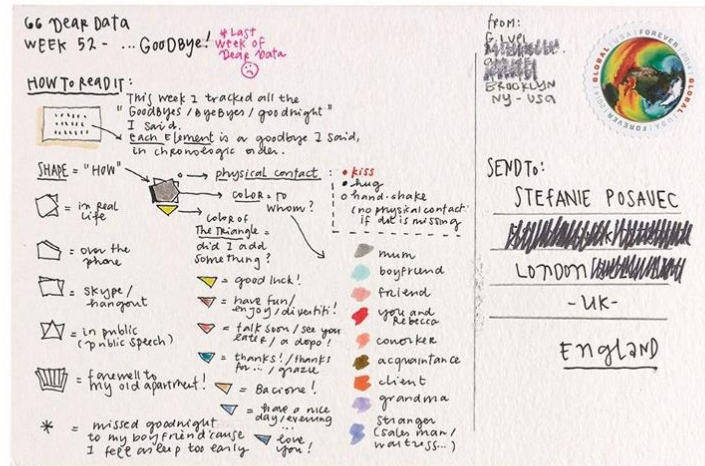 GG DEAR DATA
WEEK 52 - ... GOODBYE!
* Last week of Dear Data
HOW TO READ IT:
This week I tracked all the
"GOODBYES / BYEBYES / goodnight"
I said.
each Element is a goodbye I said,
in chronologic order.
SHAPE = "HOW"
= in real life
= over the phone
= skype / hangout
= in public (public speech)
= farewell to my old apartment!
* = missed goodnight
to my boyfriend 'cause
I fell asleep too early
physical contact:
• kiss
• hug
o hand-shake
(no physical contact
if dot is missing
COLOR = TO WHOM?
color of
The Triangle =
did I add
something?
= good luck!
= have fun / enjoy / divertiti!
= talk soon / see you later / a dopo!
= thanks! / thanks for... / grazie
= Bacione!
= have a nice day / evening ...
= love you!
mum
boyfriend
friend
you and Rebecca
coworker
acquaintance
client
grandma
stranger
(sales man / waitress...)
from:
G. LUPI
BROOKLYN
NY - USA
GLOBAL
USA
FOREVER
SEND TO:
STEFANIE POSAVEC
LONDON
- UK -
ENGLAND